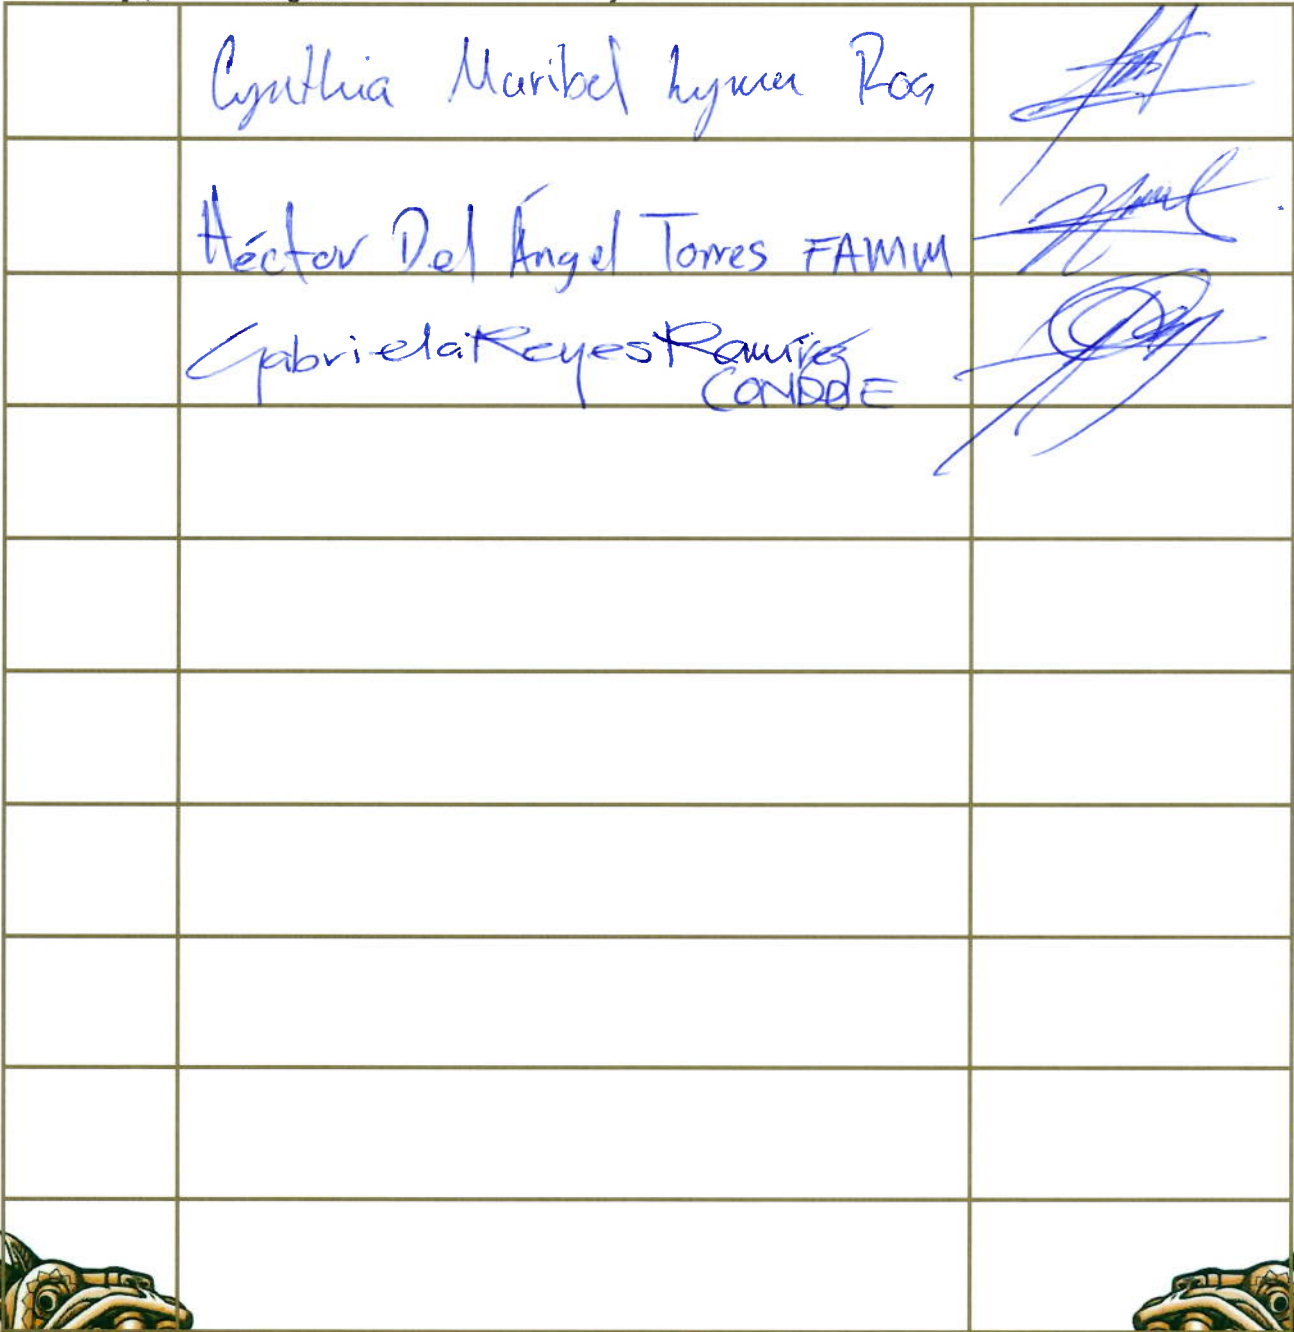 Cynthia Maribel Roa
Héctor Del Ángel Torres FAMM
Gabriela Reyes Ramírez
CONDDE